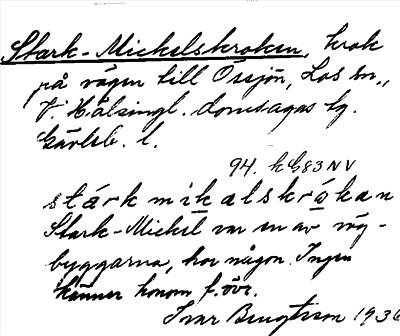 Stark-Mickelskroken, krok
på vägen till Össjön, Los sn.,
V. Hälsingl. domsagas tg.
Gävleb. l.
94. k G83NV
stárkmikalskrókan
Stark-Mickel var en av väg-
byggarna, hos någon. Ingen
känner honom f. övr.
Ivar Bengtsson 1936